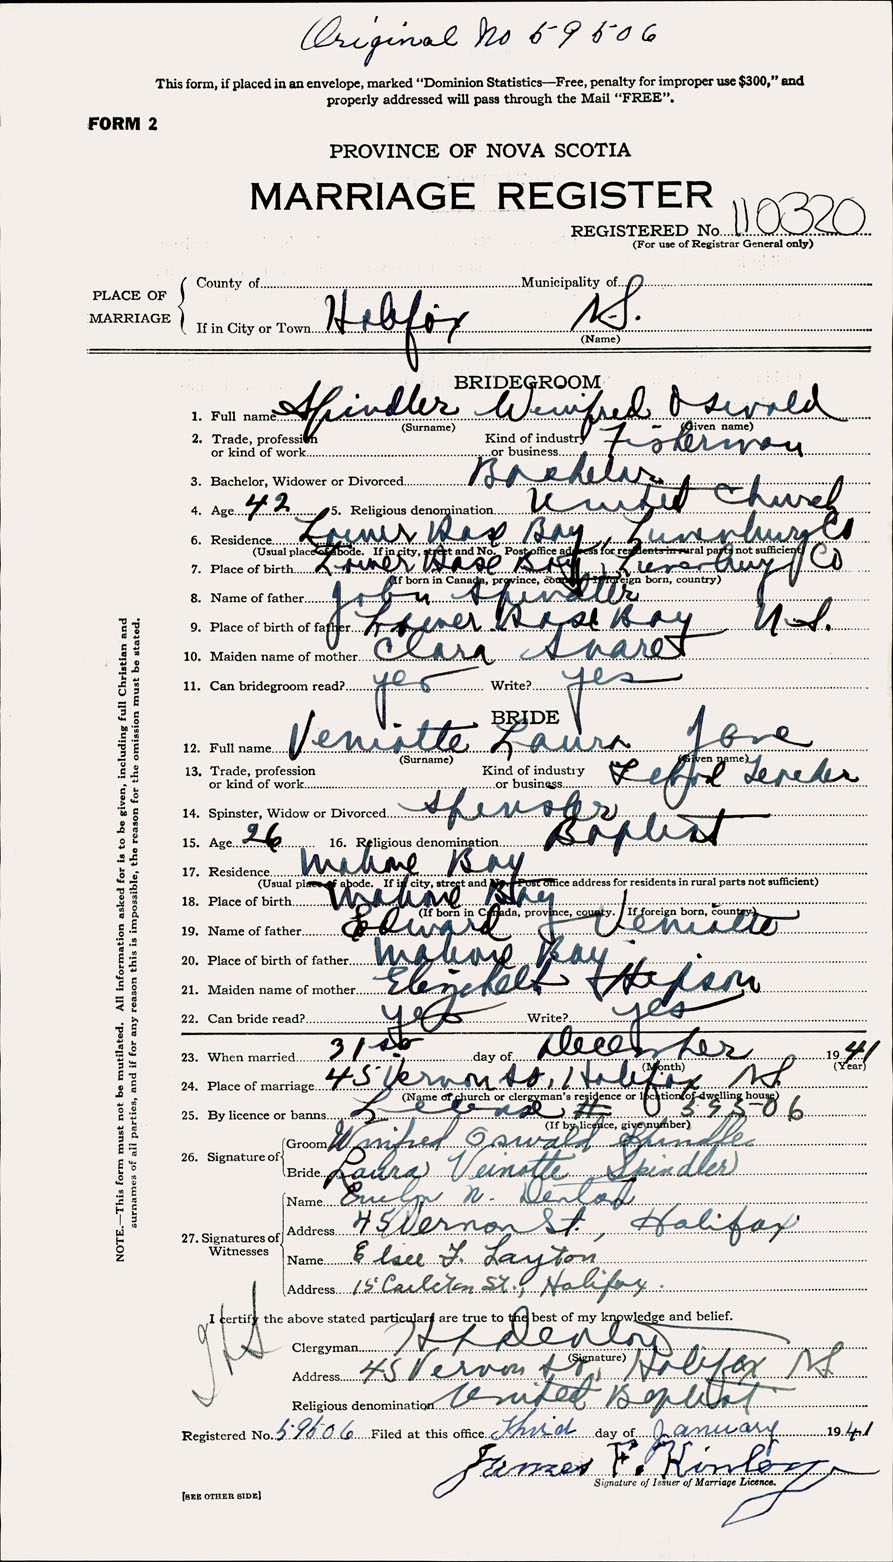 Original No 59506
This form, if placed in an envelope, marked "Dominion Statistics—Free, penalty for improper use $300," and
properly addressed will pass through the Mail "FREE".
FORM 2
PROVINCE OF NOVA SCOTIA
MARRIAGE REGISTER
REGISTERED No. 110320
(For use of Registrar General only)
PLACE OF MARRIAGE
County of Municipality of
If in City or Town Halifax N.S.
(Name)
BRIDEGROOM
1. Full name Spindler Winifred Oswald
(Surname) (Given name)
2. Trade, profession or kind of work Kind of industry or business Fisherman
3. Bachelor, Widower or Divorced Bachelor
4. Age 42 5. Religious denomination United Church
6. Residence Lower Rose Bay, Lunenburg Co
(Usual place of abode. If in city, street and No. Post office address for residents in rural parts not sufficient)
7. Place of birth Lower Rose Bay, Lunenburg Co
(If born in Canada, province, county. If foreign born, country)
8. Name of father John Spindler
9. Place of birth of father Lower Rose Bay N.S.
10. Maiden name of mother Clara
11. Can bridegroom read? yes Write? yes
BRIDE
12. Full name Veniotte Laura Jane
(Surname) (Given name)
13. Trade, profession or kind of work Kind of industry or business
14. Spinster, Widow or Divorced Spinster
15. Age 26 16. Religious denomination Baptist
17. Residence Mahone Bay
(Usual place of abode. If in city, street and No. Post office address for residents in rural parts not sufficient)
18. Place of birth Mahone Bay
(If born in Canada, province, county. If foreign born, country)
19. Name of father Edward J Veniotte
20. Place of birth of father Mahone Bay
21. Maiden name of mother Elizabeth
22. Can bride read? yes Write? yes
23. When married 31st day of December 1941
(Month) (Year)
24. Place of marriage 45 Vernon St, Halifax N.S.
(Name of church or clergyman's residence or location of dwelling house)
25. By licence or banns License # 59506
(If by licence, give number)
26. Signature of
Groom Winifred Oswald Spindler
Bride Laura Veinotte Spindler
27. Signatures of Witnesses
Name Evelyn N. Denton
Address 45 Vernon St., Halifax
Name Elsee F. Layton
Address 15 Carleton St., Halifax.
I certify the above stated particulars are true to the best of my knowledge and belief.
Clergyman H Denton
(Signature)
Address 45 Vernon St, Halifax NS
Religious denomination United Baptist
Registered No. 59506 Filed at this office Third day of January 1941
James F. Kinley
Signature of Issuer of Marriage Licence.
[SEE OTHER SIDE]
NOTE.—This form must not be mutilated. All information asked for is to be given, including full Christian and
surnames of all parties, and if for any reason this is impossible, the reason for the omission must be stated.